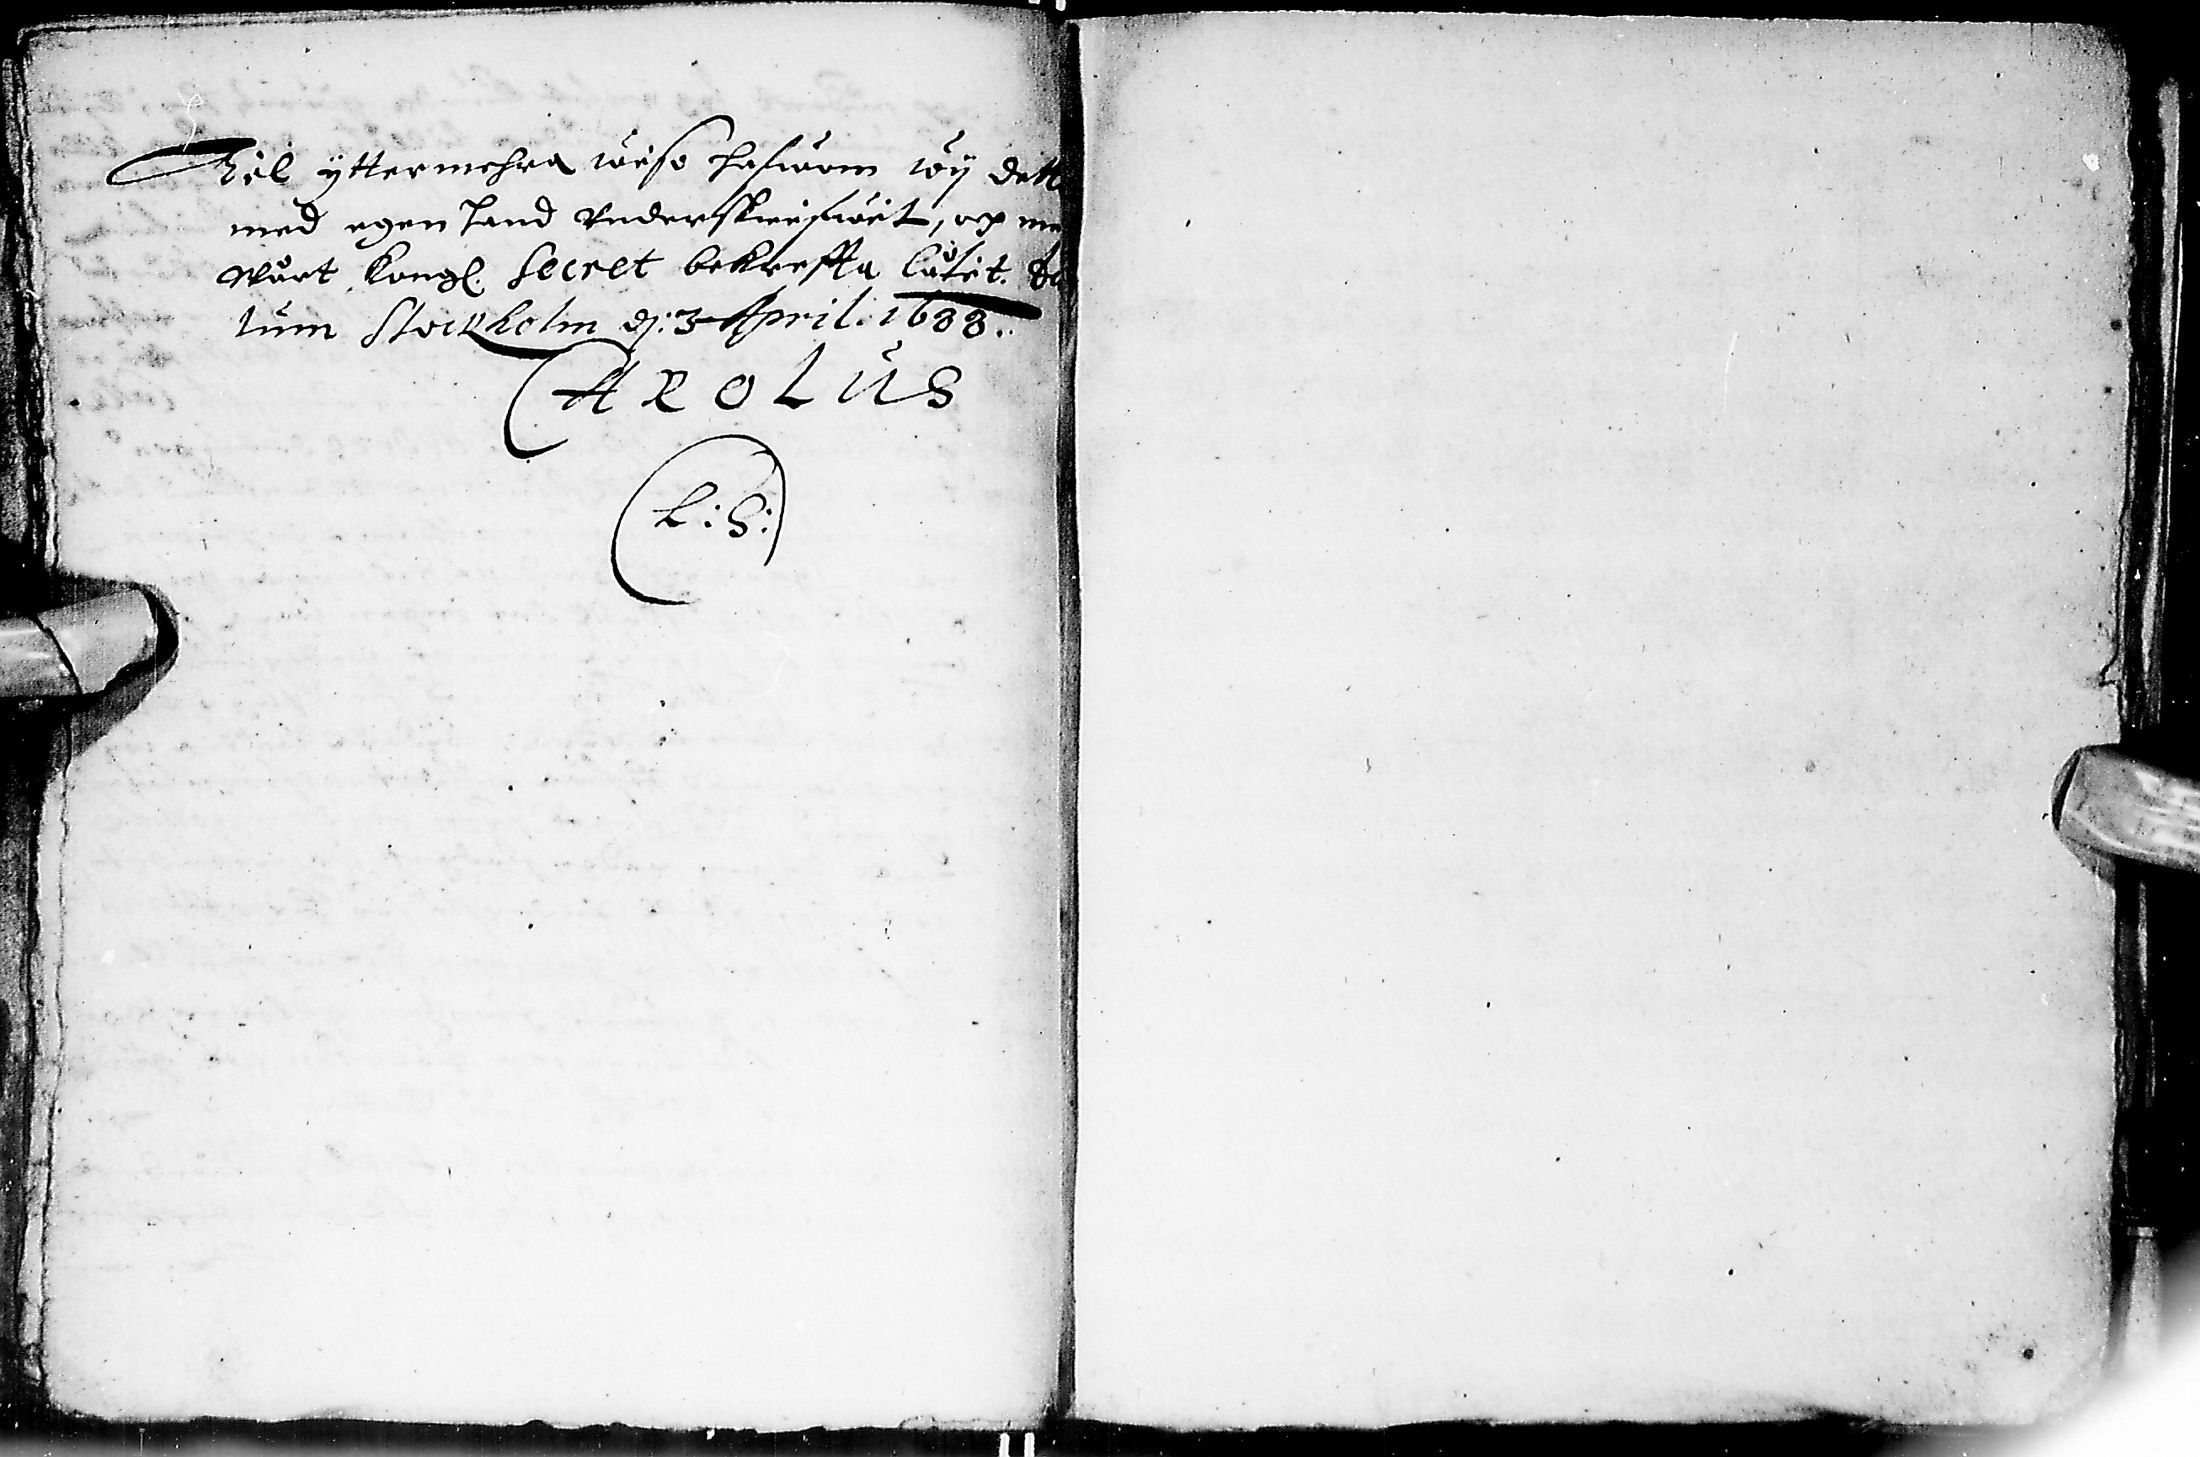 Til ÿttermehra wiso hafwom wÿ dett
med egen hand underskrifwit, och me
Wårt Kongl. Secret bekrefta låtit. Da
tum Stockholm d: 3 April. 1688..
CAROLUS
(L: S:)